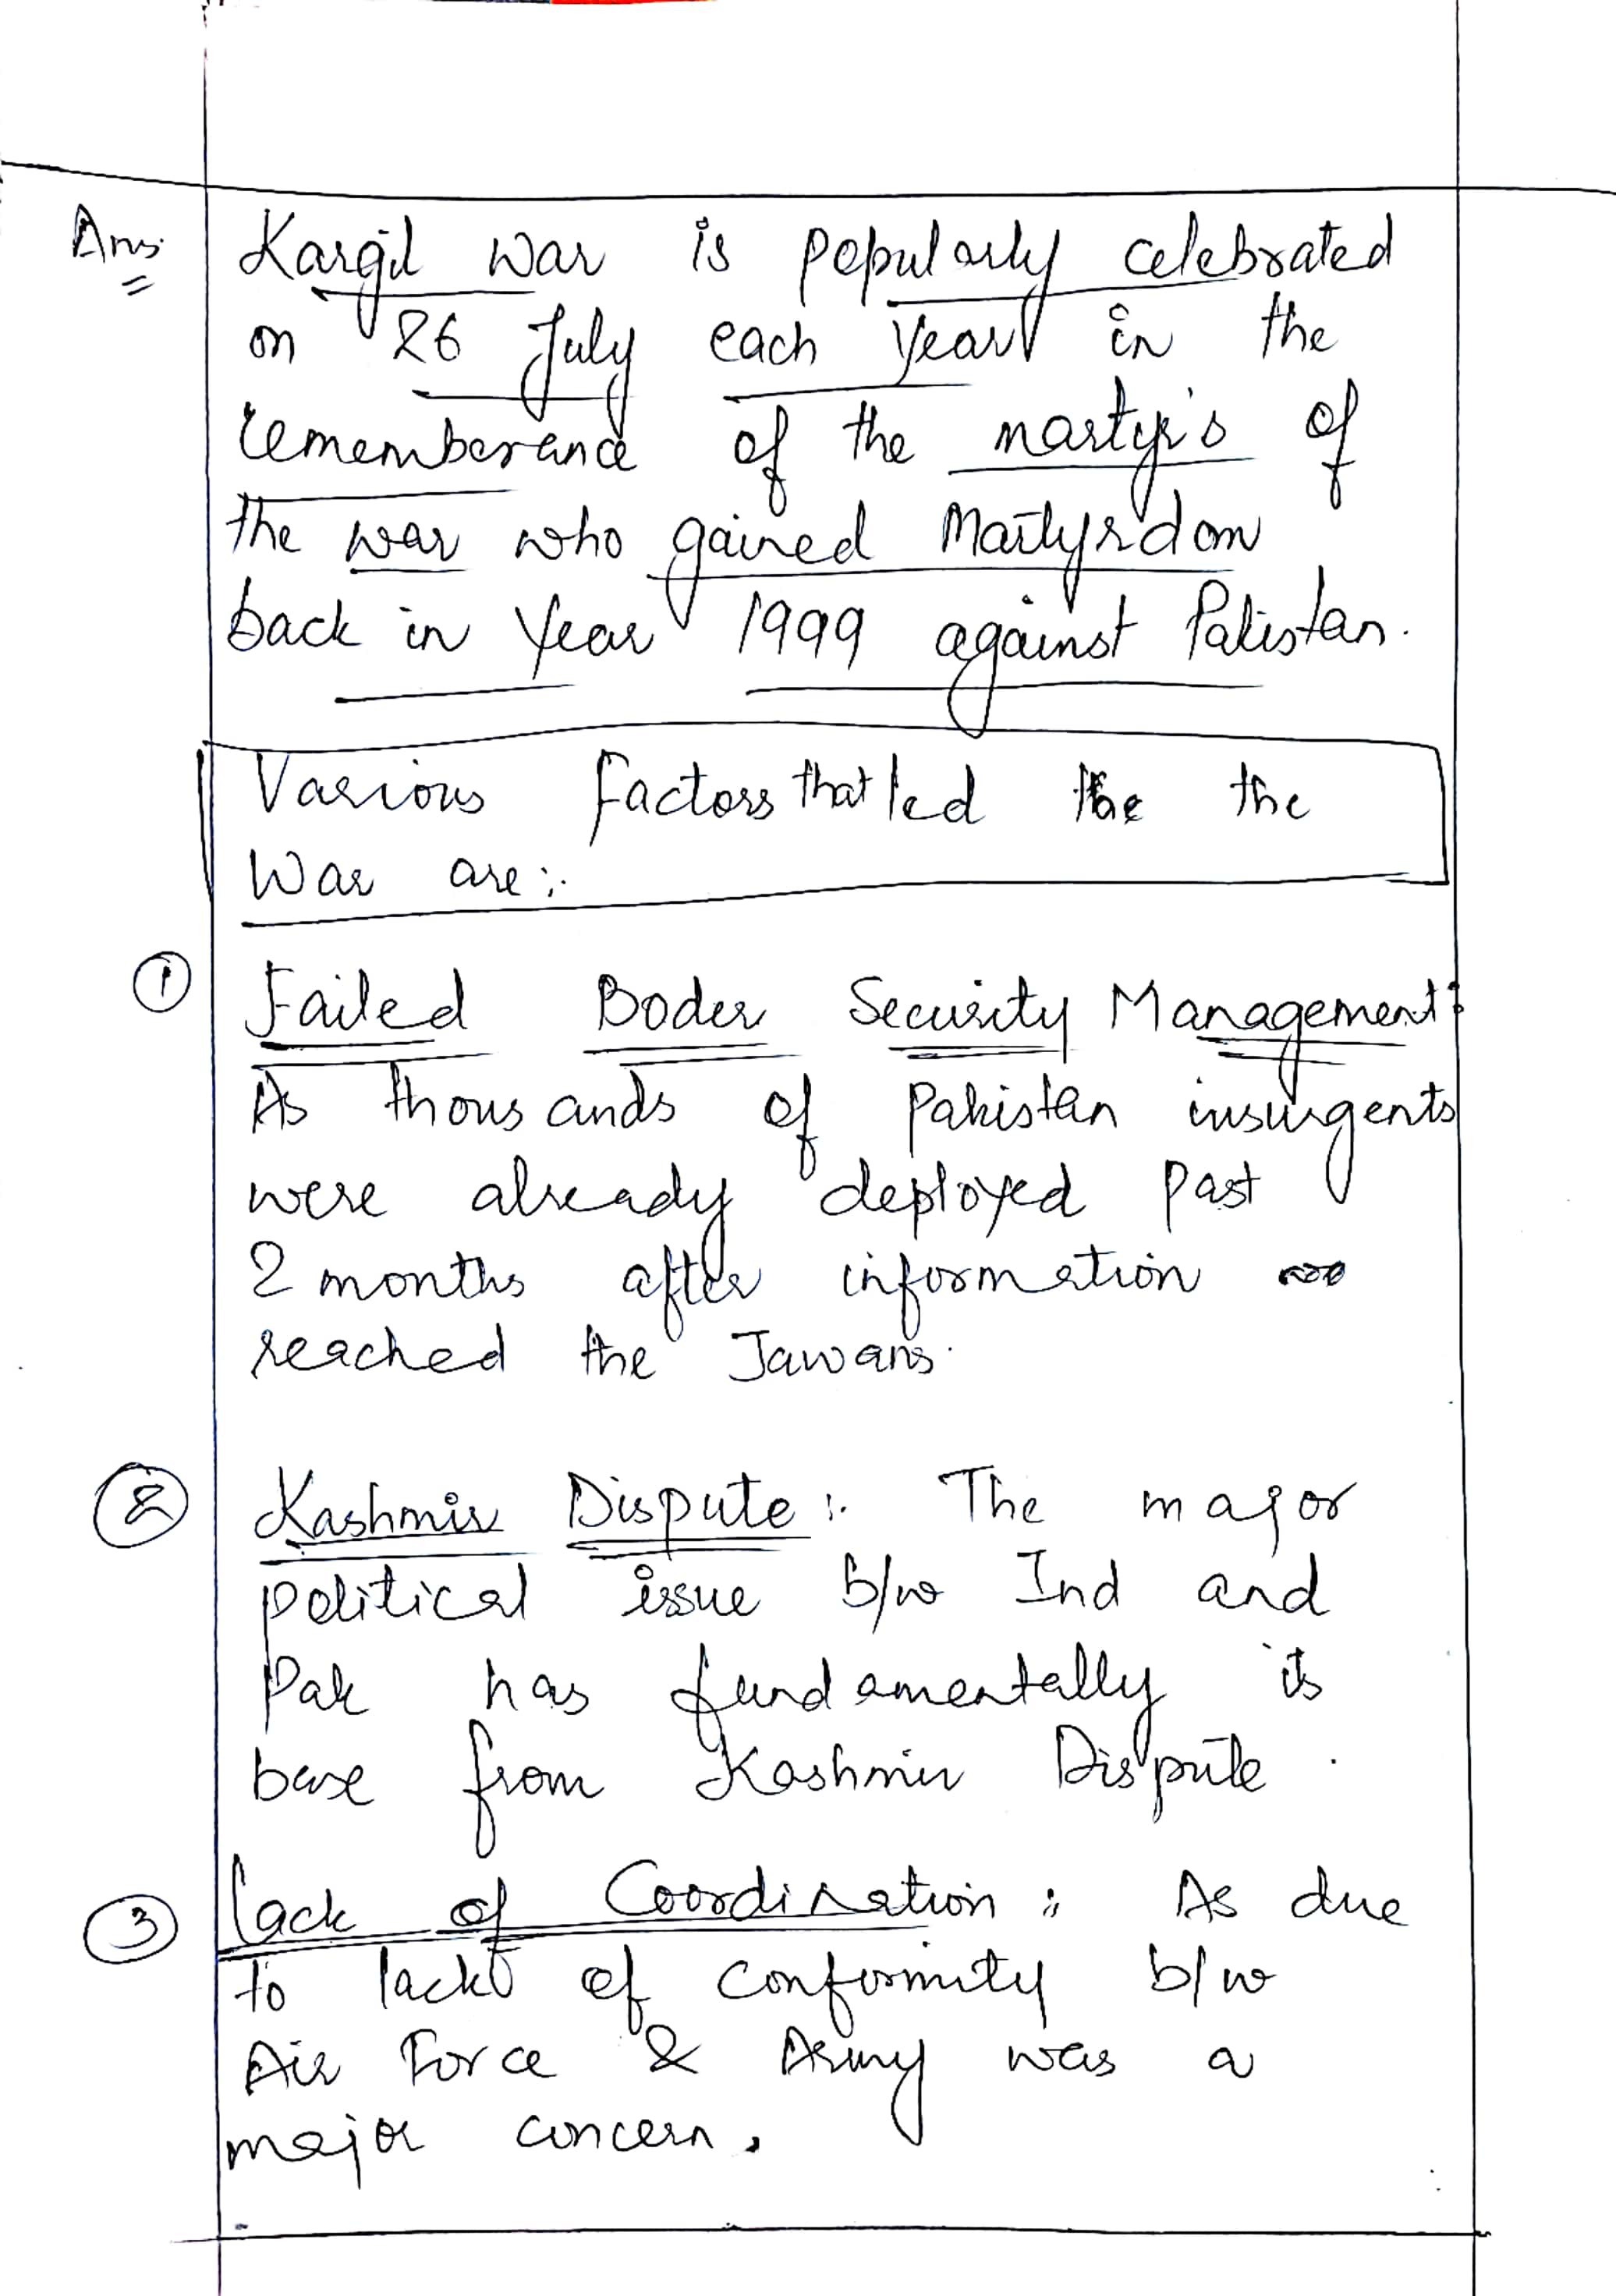 Ans:
Kargil war is popularly celebrated
on 26 July each year in the
rememberance of the martyr's of
the war who gained Martyrdom
back in Year 1999 against Pakistan.
Various factors that led the the
War are:-
① Failed Boder Security Management:
As thousands of Pakistan insurgents
were already deployed past
2 months after information
reached the Jawans.
② Kashmir Dispute:- The major
political issue b/w Ind and
Pak has fundamentally its
base from Kashmir Dispute.
③ Lack of Coordination: As due
to lack of conformity b/w
Air Force & Army was a
major concern.